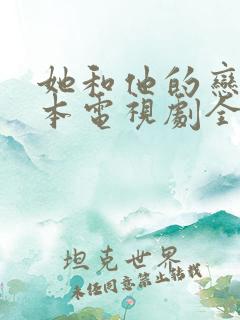 她和他的戀
本電視劇全
坦克世界
未經同意禁止轉載